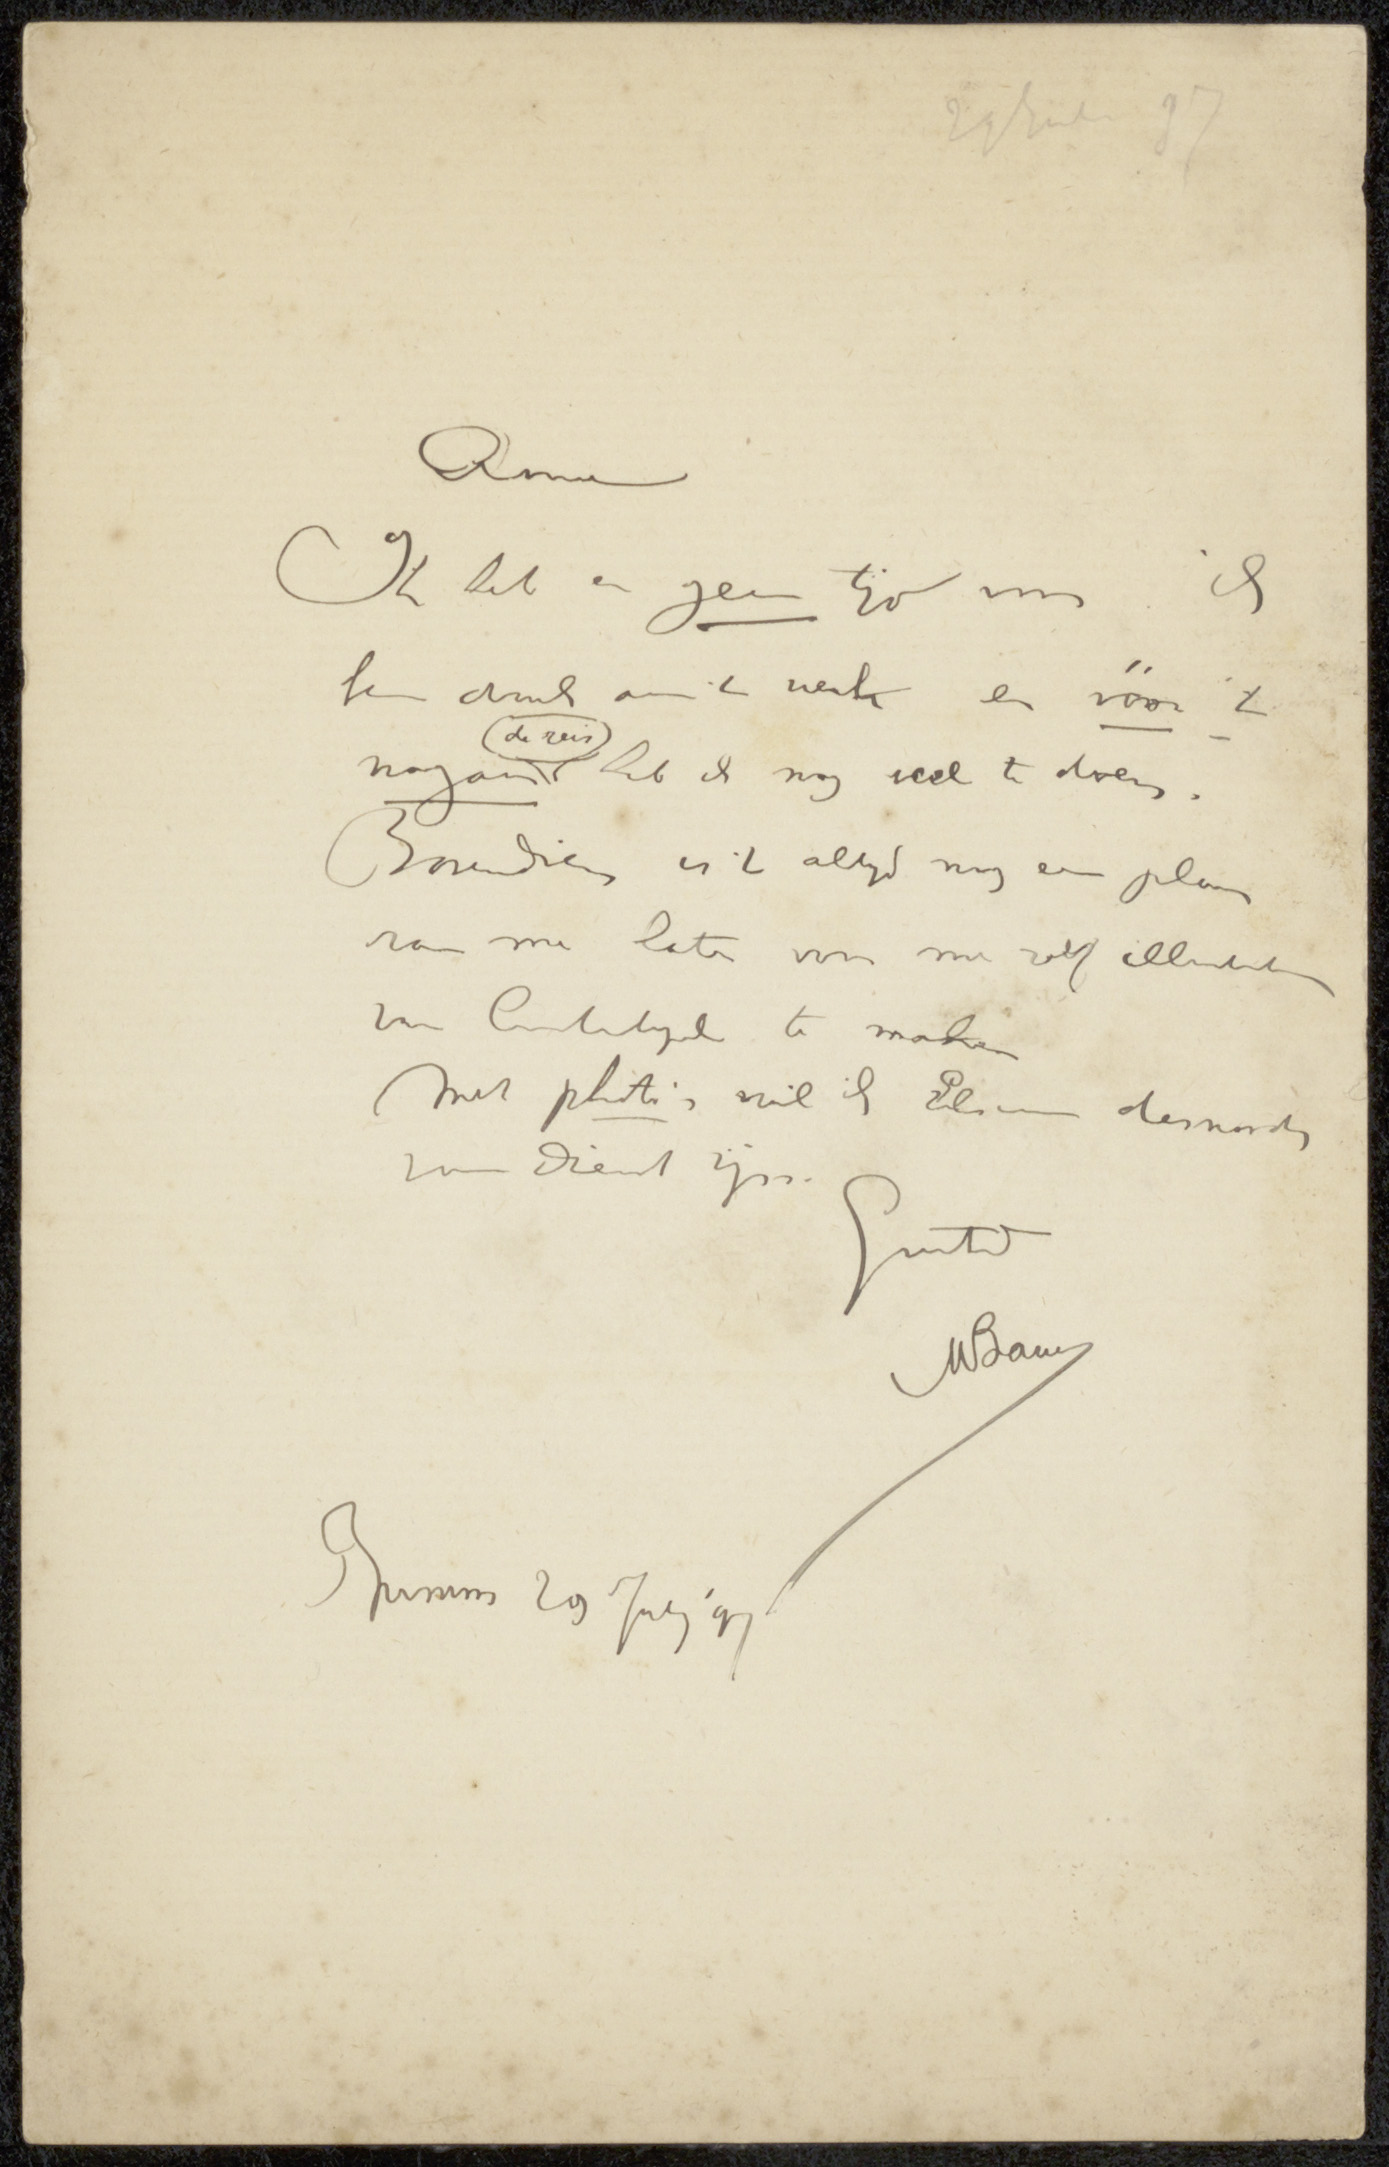 29 Juli 97
Amice
Ik heb er geen tijd voor ik
ben druk aan 't werk en vóór 't
de reis
najaar heb ik nog veel te doen.
Bovendien is 't altijd nog een plan
van me later voor me zelf illustraties
van te maken
Met photo's wil ik Elsevier desnoods
van dienst zijn.
Gegroet
MBauer
Bussum 29 July 97